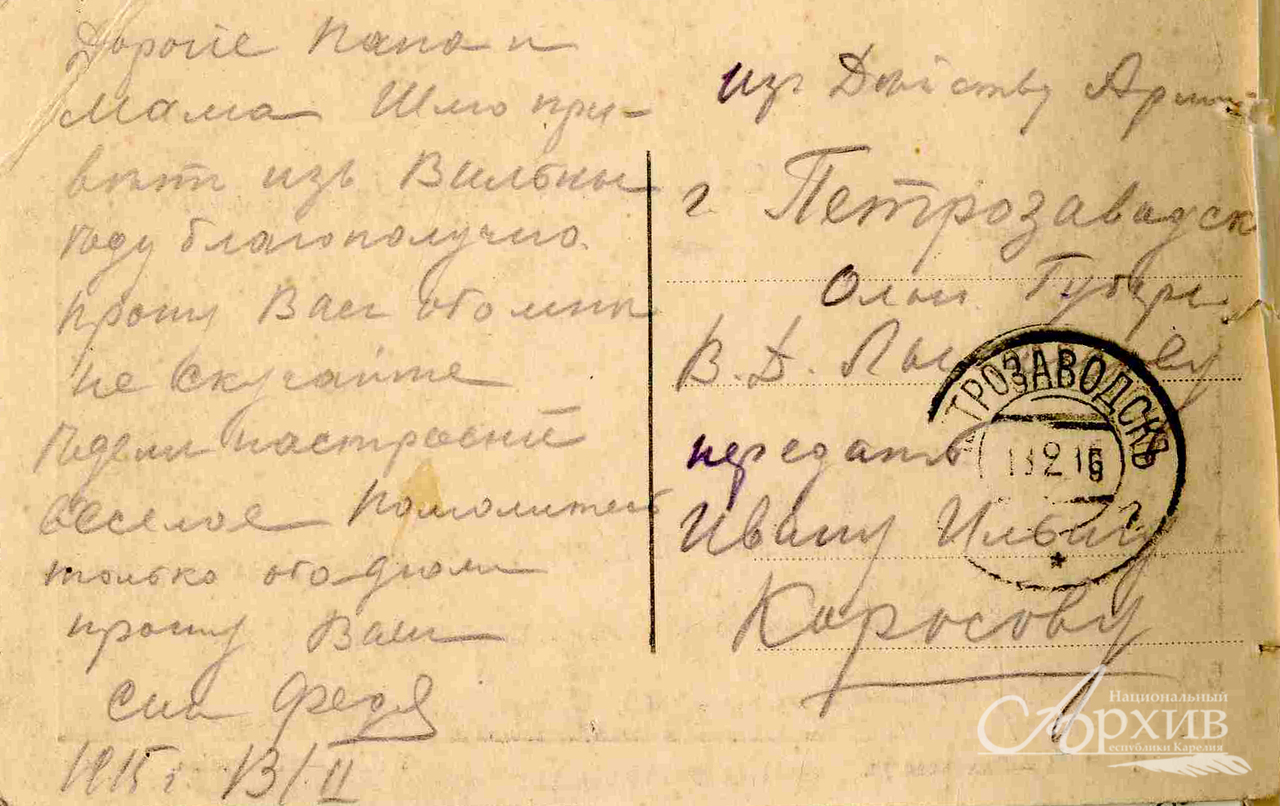 Дорогіе Папа и
Мама Шлю при-
вѣтъ изъ Вильны
Еду благополучно.
прошу Васъ обо мнѣ
не скучайте
настроение
веселое Помолитесь
только обо
прошу Васъ
Сын Федя
1915 г. 13/II
изъ Действу Арміи
г. Петрозаводск
Олон. Губерн.
В. Д.
передать
Ивану Ильичу
Каросову
ТРОЗАВОДСКЪ
13 2 15
Национальный
Архив
республики Карелия